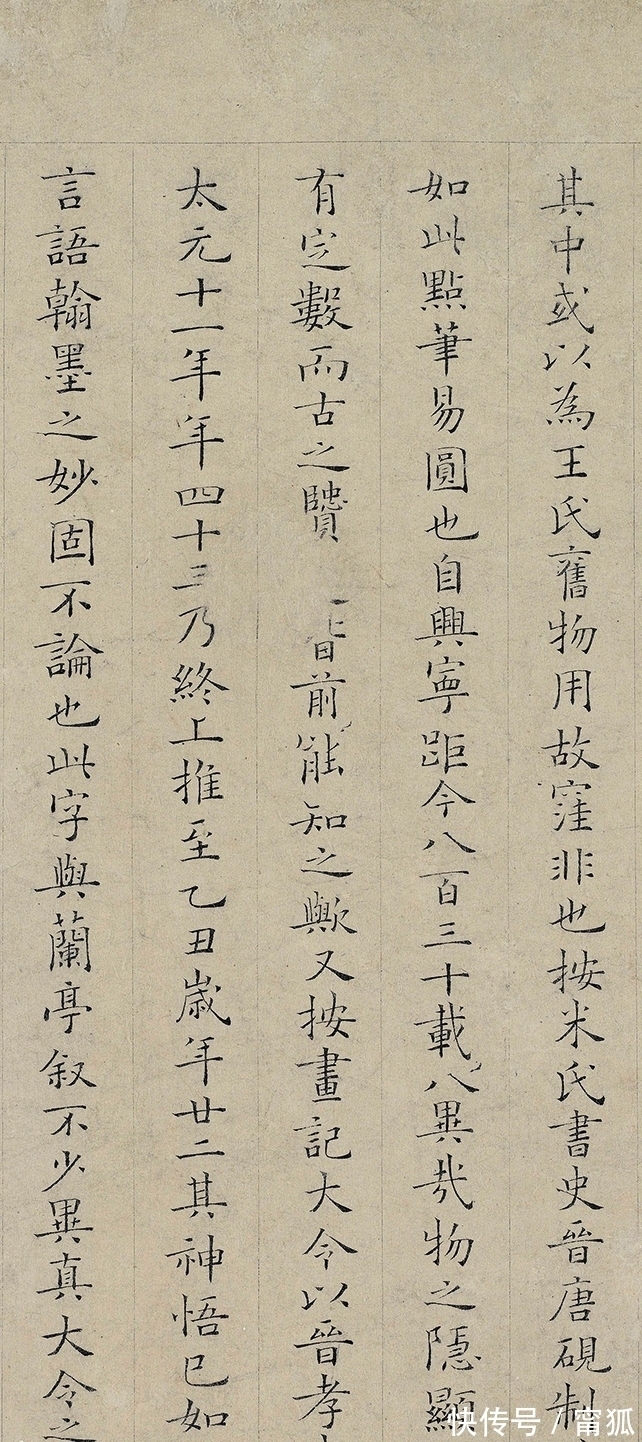 其中或以為王氏舊物用故窪非也按米氏書史晉唐硯制
如此點筆易圓也自興寧距今八百三十載八異哉物之隱顯
有定數而古之贒 前能知之歟又按畫記大令以晉孝
太元十一年年四十三乃終上推至乙丑歲年廿二其神悟已如
言語翰墨之妙固不論也此字與蘭亭叙不少異真大令之
快传号/甯狐